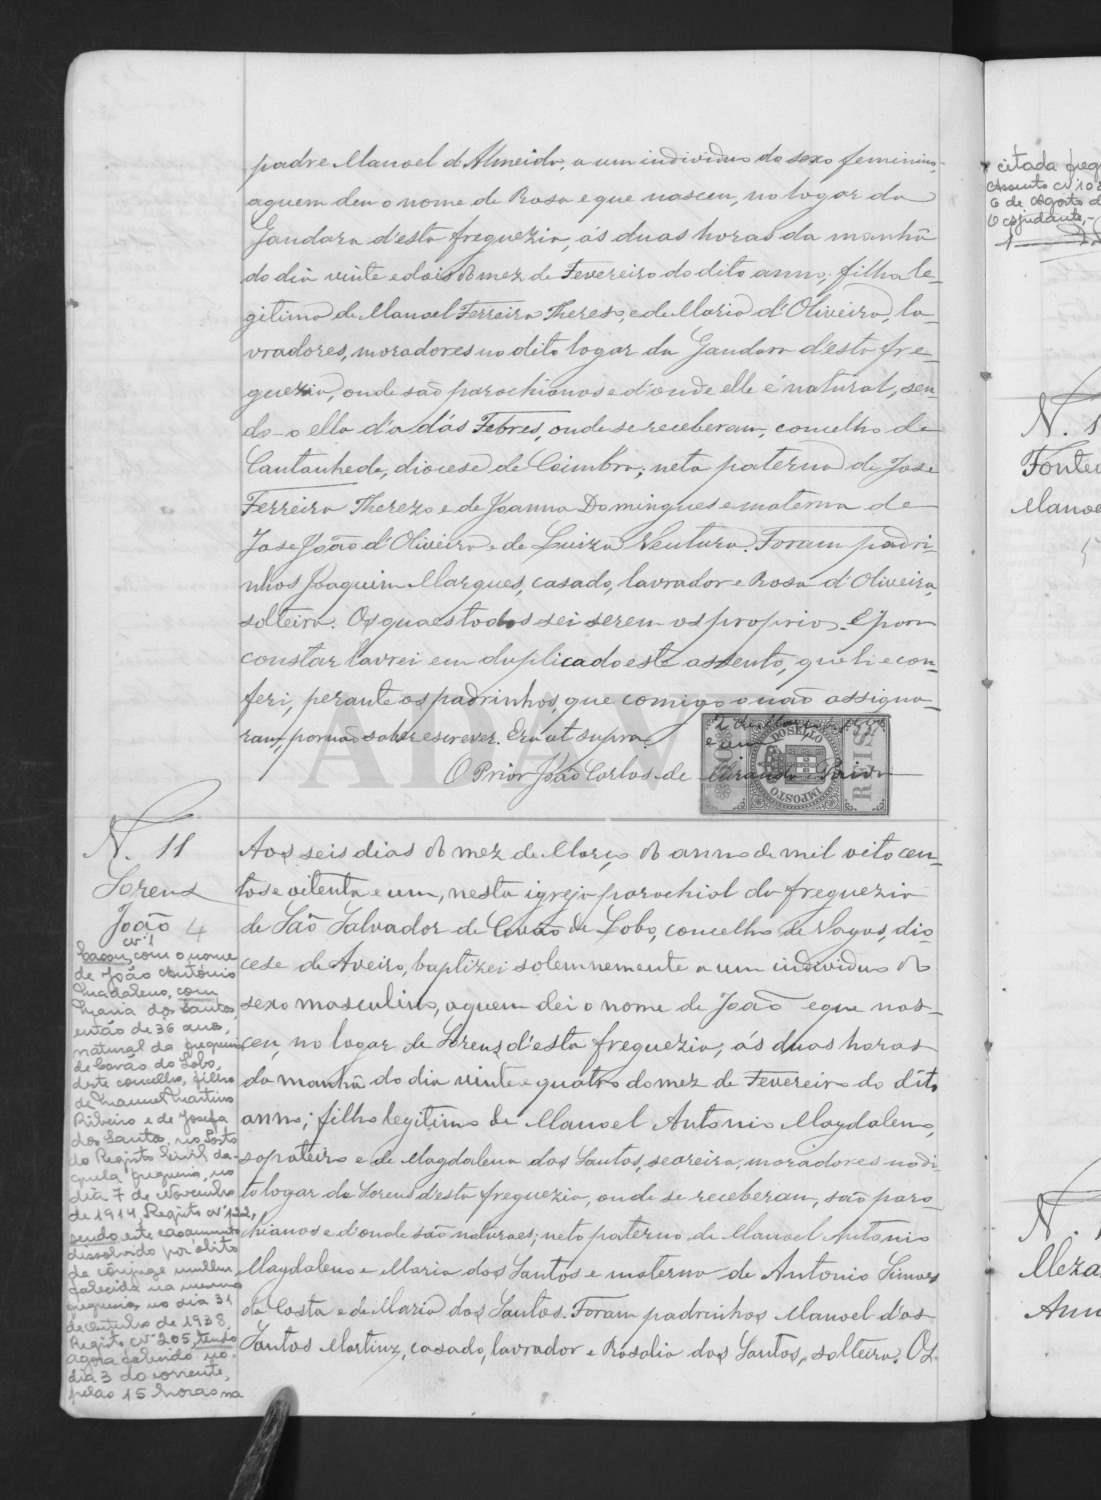 padre Manoel d'Almeida, a um individuo do sexo feminino,
aquem deu o nome de Rosa e que nasceu, no logar da
Gandara d'esta freguezia, ás duas horas da manhã
do dia vinte e dois do mez de Fevereiro do dito anno; filha le-
gitima de Manoel Ferreira Therezo, e de Maria d'Oliveira, la-
vradores, moradores no dito logar da Gandara d'esta fre-
guezia, onde são parochianos e d'onde elle é natural, sen-
do-o ella d'a dás Febres, onde se receberam, concelho de
Cantanhede, diocese de Coimbra; neta paterna de José
Ferreira Therezo e de Joanna Domingues e materna de
José João d'Oliveira e de Luiza Ventura. Foram padri-
nhos Joaquim Marques, casado, lavrador e Rosa d'Oliveira,
solteira. Os quaes todos sei serem os proprios. E para
constar lavrei em duplicado este assento, que li e con-
feri, perante os padrinhos, que comigo o não assigna-
ram, por não saber escrever. Era ut supra.
O Prior João Carlos de Miranda
DO SELLO
IMPOSTO
REIS
ADAVR
N. 11
Sorens
João 4
Nº 1
Casou, com o nome
de João António
Madaleno, com
Maria dos Santos
então de 36 anos,
natural da freguesia
de Covão do Lobo,
deste concelho, filha
de Manuel Martins
Ribeiro e de Josefa
dos Santos, no Posto
do Registo Civil da-
quela freguesia, no
dia 7 de Novembro
de 1914, Registo Nº 122,
sendo este casamento
dissolvido por óbito
da cônjuge mulher
falecida na mesma
freguesia, no dia 31
de Outubro de 1938,
Registo Nº 205, tendo
agora falecido no
dia 3 do corrente,
pelas 15 horas na
Aos seis dias do mez de Março do anno de mil oito cen-
tos e oitenta e um, nesta igreja parochial da freguezia
de São Salvador de Covão do Lobo, concelho de Vagos, dio-
cese de Aveiro, baptizei solemnemente a um individuo do
sexo masculino, aquem dei o nome de João e que nas-
ceu, no logar de Sorens, d'esta freguezia; ás duas horas
da manhã do dia vinte e quatro do mez de Fevereiro do dito
anno; filho legitimo de Manoel Antonio Magdaleno,
sapateiro e de Magdalena dos Santos, seareira, moradores no di-
to logar de Sorens d'esta freguezia, onde se receberam, são paro-
chianos e d'onde são naturaes; neto paterno de Manoel Antonio
Magdaleno e Maria dos Santos e materno de Antonio Simoes
da Costa e de Maria dos Santos. Foram padrinhos Manoel d'os
Santos Martins, casado, lavrador e Rosalia dos Santos, solteira. Os
citada freg
Assento Nº 10
6 de Agosto d
O Ajudante,
N. 1
Manoe
N. 1